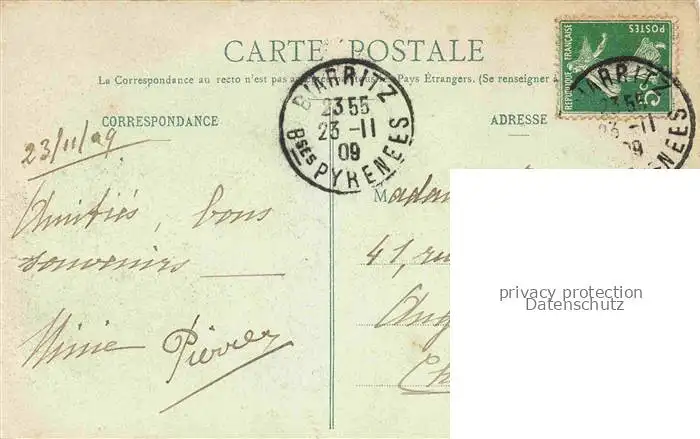 CARTE POSTALE
La Correspondance au recto n'est pas acceptée par tous les Pays Étrangers. (Se renseigner à
CORRESPONDANCE
ADRESSE
RÉPUBLIQUE FRANÇAISE
POSTES
5c
BIARRITZ
23 55
23 -11
09
BSES PYRENEES
BIARRITZ
23 55
23 -11
09
23/11/09
Amitiés, bons
souvenirs
Mimie Pierre
Madam
41, ru
Ang
Ch
privacy protection
Datenschutz